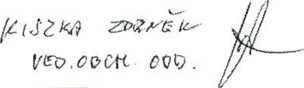 KISZKA ZDENĚK
VED. OBCH. ODD.